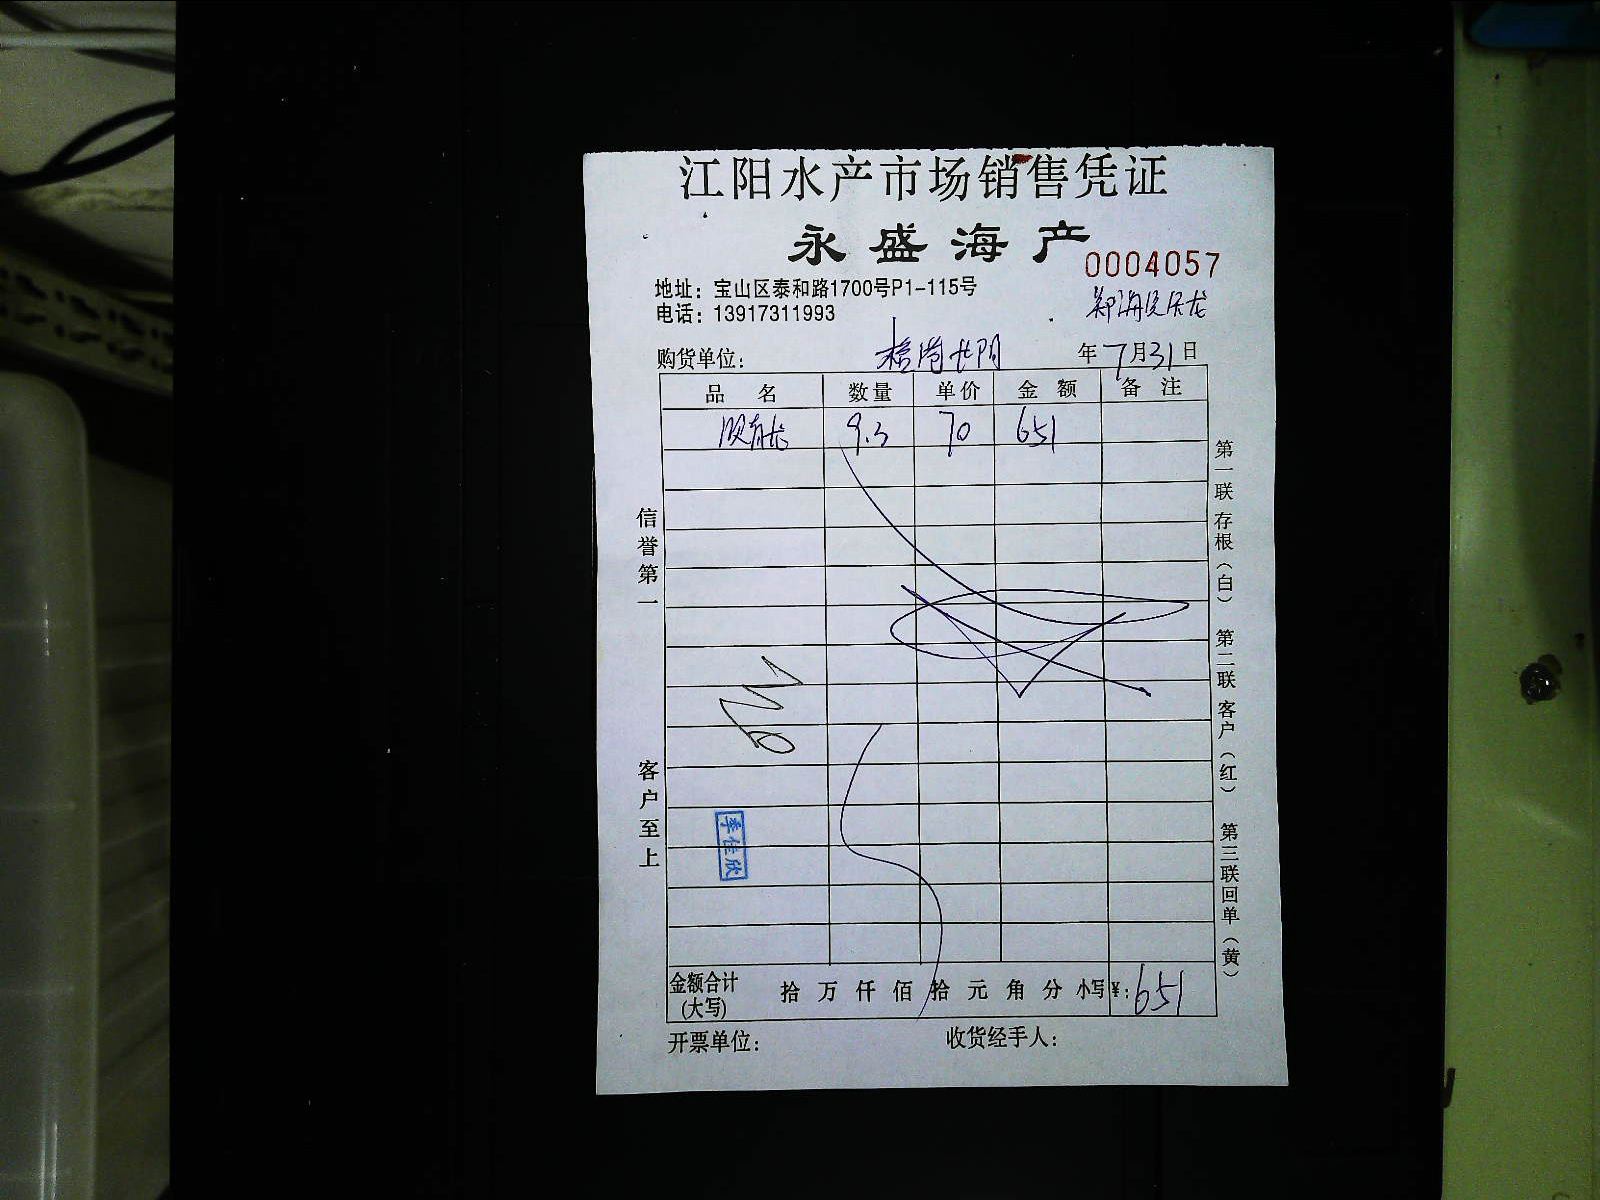 江阳水产市场销售凭证
永盛海产
0004057
地址：宝山区泰和路1700号P1-115号
电话：13917311993
购货单位：
年7月31日
品名 数量 单价 金额 备注
9.3 70 651
信誉第一
客户至上
第一联存根（白） 第二联客户（红） 第三联回单（黄）
季佳欣
金额合计(大写) 拾 万 仟 佰 拾 元 角 分 小写¥：651
开票单位： 收货经手人：